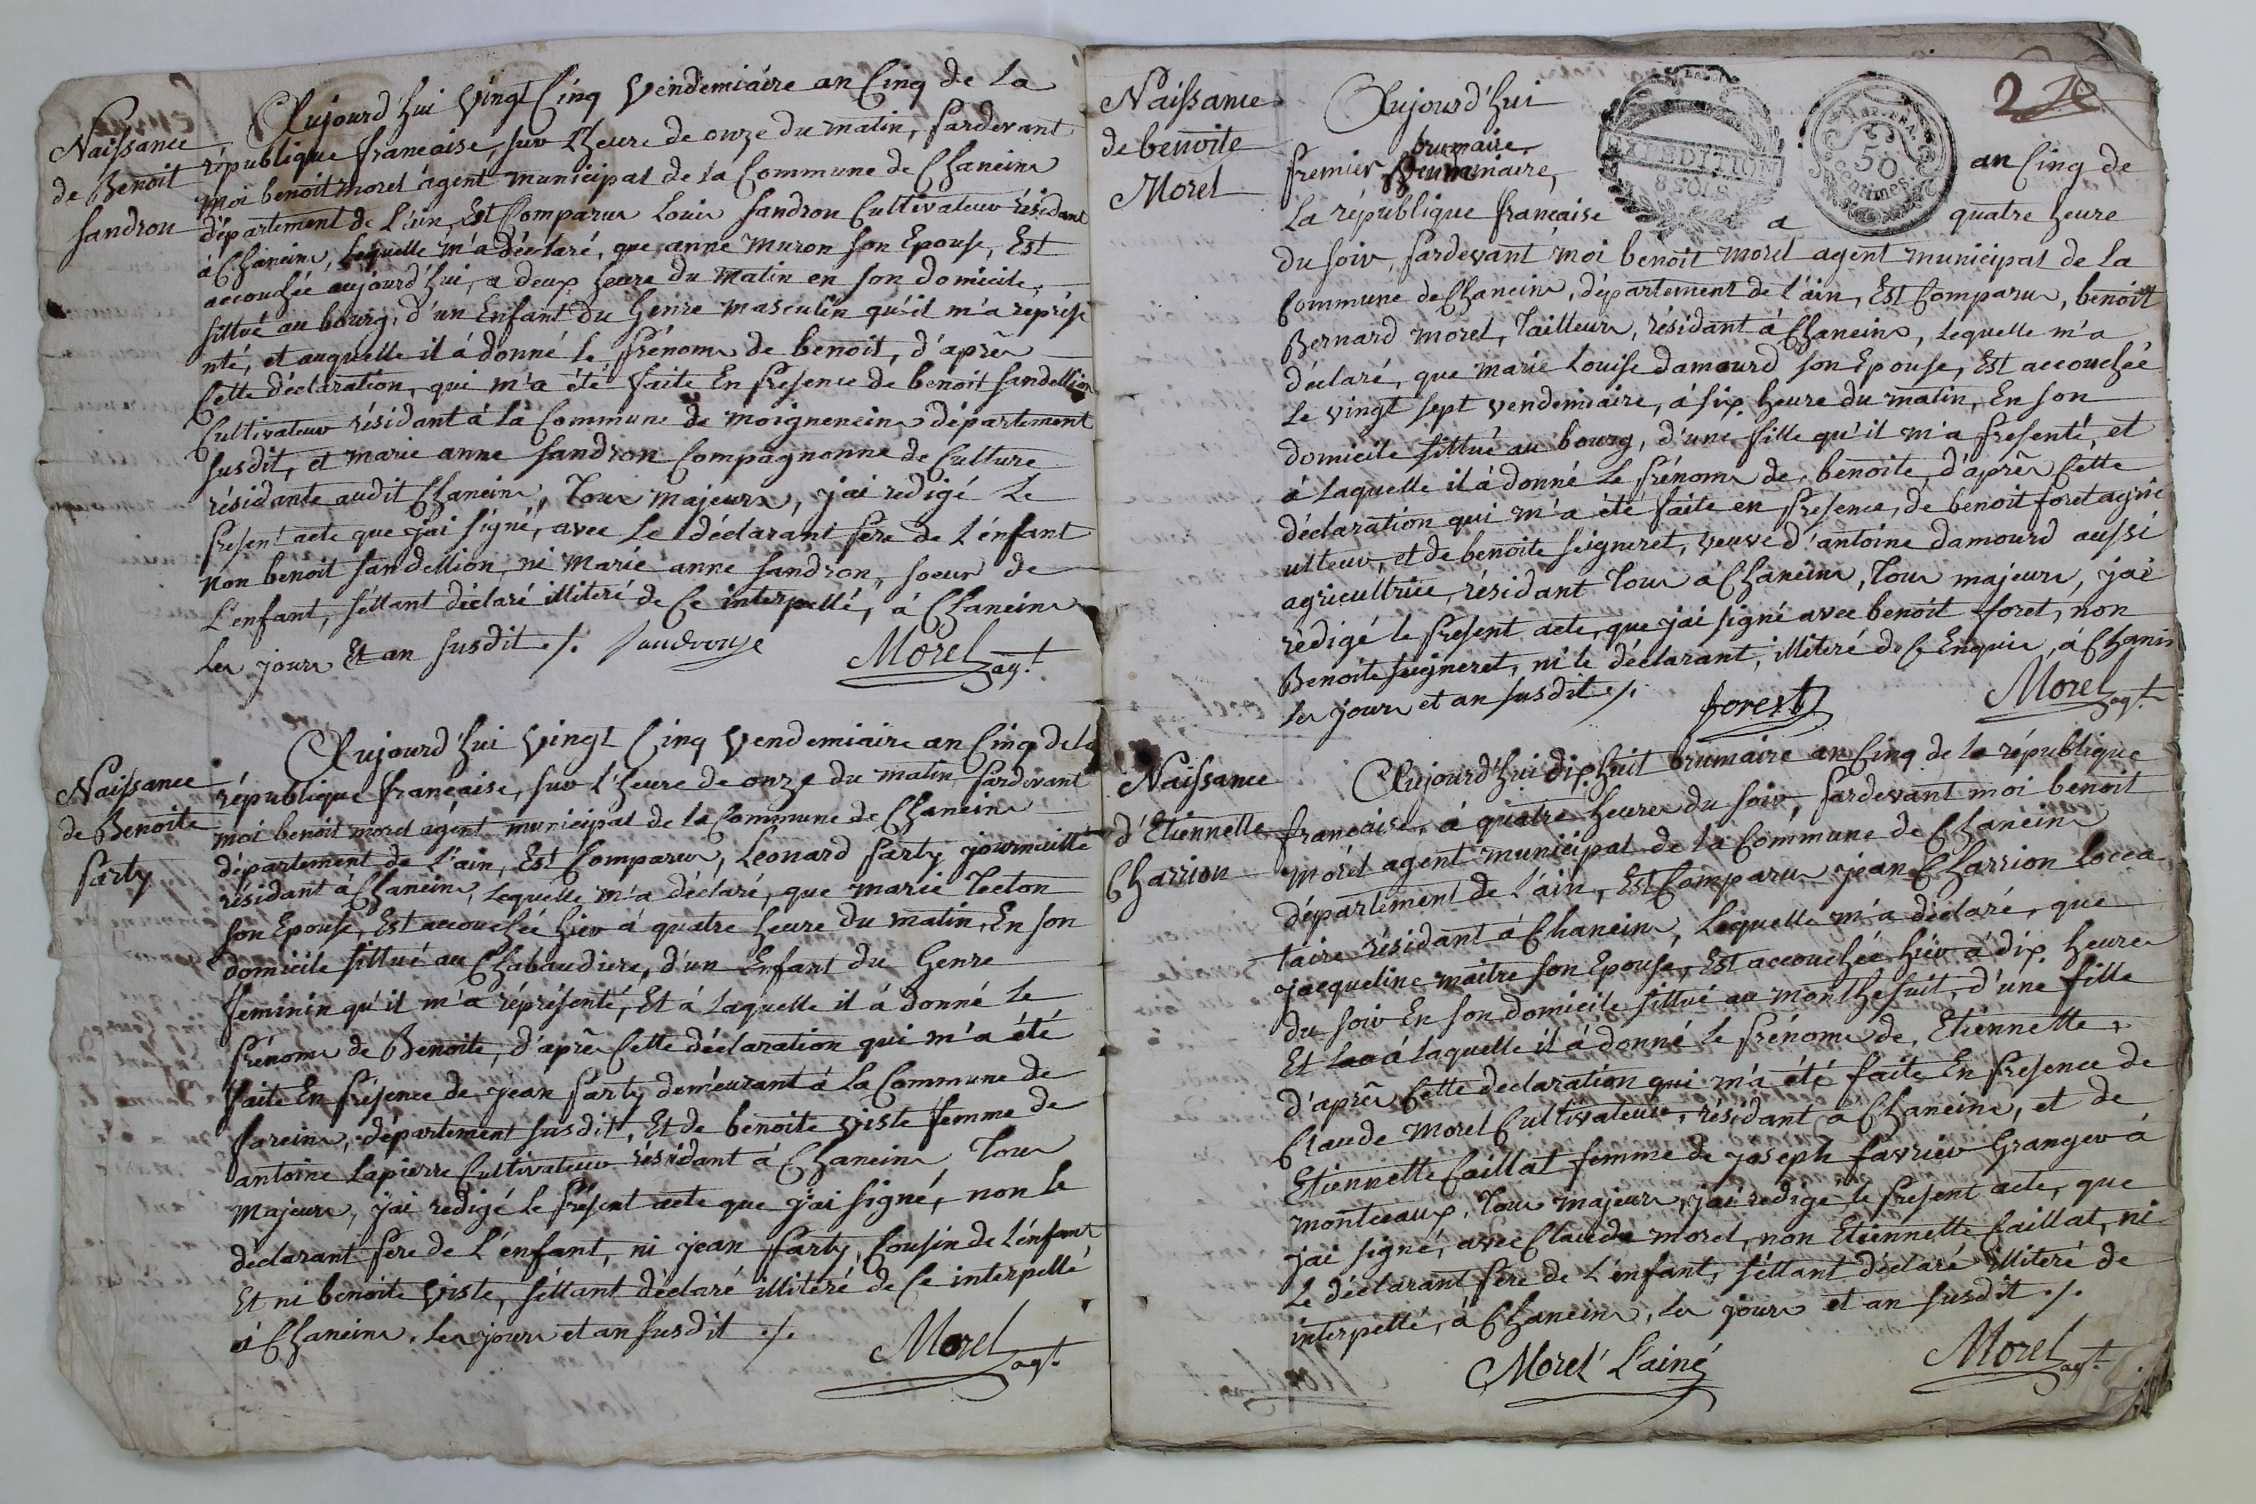 Naissance
de Benoit
sandron
Aujourd'hui vingt Cinq vendemiaire an Cinq de la
république francaise, sur l'heure de onze du matin, pardevant
moi benoit morel agent municipal de la Commune de Chaneins
département de l'ain, Est Comparu Louis sandron Cultivateur résidant
à Chaneins, lequelle m'a déclaré, que anne muron son Epouse, Est
accouchée aujourd'hui, a deux heure du matin en son domicile,
sittué au bourg, d'un Enfant du Genre masculin qu'il m'a représe
nté, et auquelle il á donné le prénom de benoit, d'après
Cette déclaration, qui m'a été faite En presence de benoit sandellion
Cultivateur résidant á la Commune de moigneneins département
susdit, et marie anne sandron Compagnonne de Culture
résidante audit Chaneins, Tous majeurs, j'ai redigé le
present acte que j'ai signé, avec le déclarant pere de l'énfant
non benoit sandellion, ni marie anne sandron, soeur de
l'enfant, séttant déclaré illiteré de Ce interpellé, á Chaneins
les jour Et an susdit ./.
sandronje
Morel agt.
Naissance
de Benoite
party
Aujourd'hui vingt Cinq vendemiaire an Cinq de la
république francaise, sur l'heure de onze du matin pardevant
moi benoit morel agent municipal de la Commune de Chaneins
département de l'ain, Est Comparu, Leonard party journallié
résidant á Chaneins, lequelle m'a déclaré, que marie Tecton
son Epouse, Est accouchée hier á quatre heure du matin, En son
domicile sittué au Chabaudiere, d'un Enfant du Genre
feminin qu'il m'a réprésenté, Et á laquelle il á donné le
prénom de Benoite, d'après Cette déclaration qui m'a été
faite En présence de jéan party demeurant á la Commune de
fareins, département susdit, Et de benoite viste femme de
antoine Lapierre Cultivateur résidant à Chaneins Tous
majeurs, j'ai redigé le présent acte que j'ai signé, non le
déclarant pere de l'enfant, ni jean party, Cousin de l'énfant
Et ni benoite viste, séttant déclaré illiteré de Ce interpellé
á Chaneins. les jours et an susdit ./.
Morel agt.
220
EXPEDITION
8 SOLS
REP. FRA.
50
Centimes
Naissance
de benoite
Morel
Aujourd'hui
brumaire
premier
an Cinq de
la république francaise a quatre heure
du soir, pardevant moi benoit morel agent municipal de la
Commune de Chaneins, département de l'ain, Est Comparu, benoit
Bernard morel, Tailleur, résidant á Chaneins, lequelle m'a
déclaré, que marie Louise damourd son Epouse, Est accouchée
le vingt sept vendemiaire, á six heure du matin, En son
domicile sittué au bourg, d'une fille qu'il m'a presenté, et
á laquelle il á donné le prénom de, benoite, d'après Cette
déclaration qui m'a été faite en presence, de benoit foret agric
ulteur, et de benoite seigneret, veuve d'antoine damourd aussi
agricultrice, résidant Tous á Chaneins, Tous majeurs, j'ai
redigé le present acte, que j'ai signé avec benoit foret, non
Benoite seigneret, ni le déclarant, illiteré de Ce Enquis, á Chanins
les jours et an susdit ./.
forest
Morel agt.
Naissance
d'Etiennette
Charrion
Aujourd'hui dix huit brumaire an Cinq de la république
francaise, á quatre heures du soir, pardevant moi benoit
morel agent municipal de la Commune de Chaneins
département de l'ain, Est Comparu jean Charrion Locca
taire résidant á Chaneins, lequelle m'a déclaré, que
jacqueline maitre son Epouse, Est accouchée hier á dix heures
du soir En son domicile sittué au monthesuit, d'une fille
Et á laquelle il á donné le prénom de, Etiennette,
d'après Cette declaration qui m'a été faite En presence de
Claude morel Cultivateur, résidant á Chaneins, et de
Etiennette Caillat femme de joseph favrier Granger á
montceaux, Tous majeurs, j'ai redigé le present acte, que
j'ai signé, avec Claude morel, non Etiennette Caillat, ni
le déclarant pere de l'enfant, séttant déclaré illiteré de
interpellé, á Chaneins, les jours et an susdit ./.
Morel L'ainé
Morel agt.